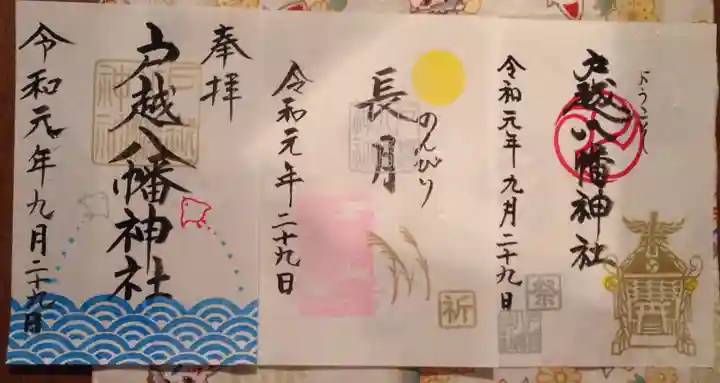 ようこそ
戸越八幡神社
令和元年九月二十九日
祭
長月
のんびり
令和元年二十九日
祈
奉拝
戸越八幡神社
令和元年九月二十九日